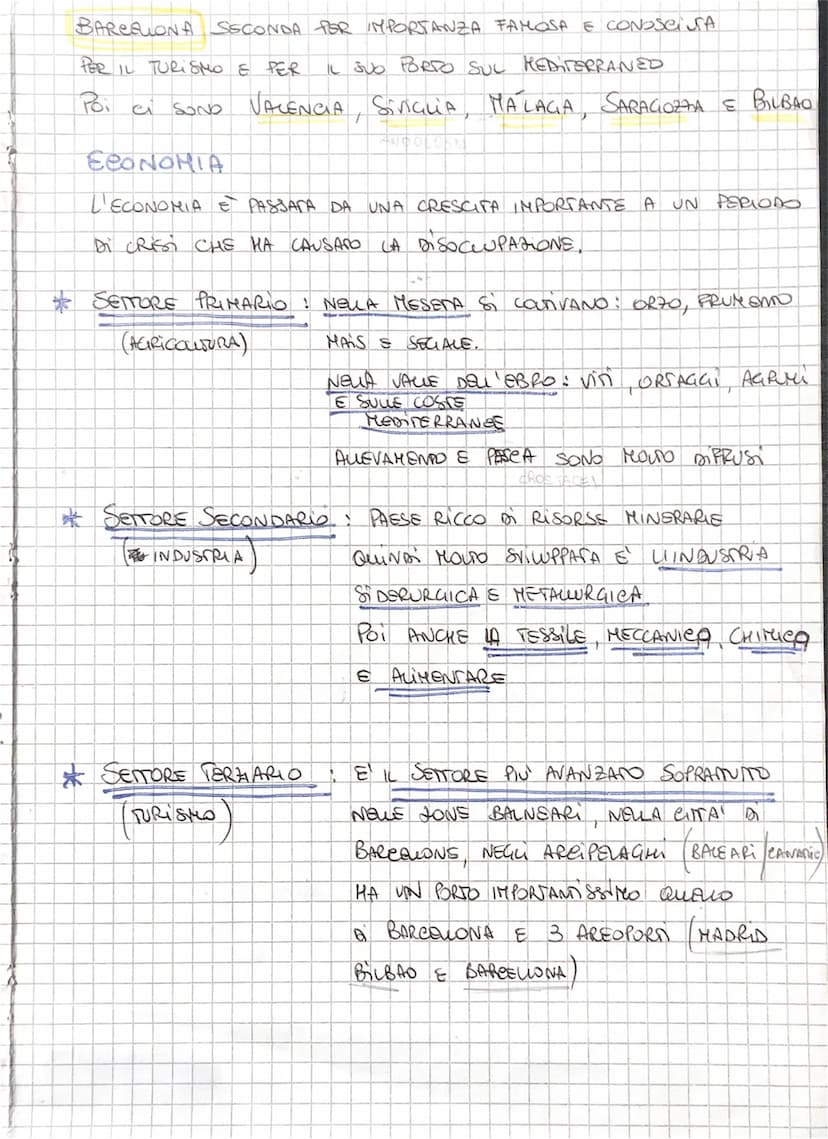 BARCELLONA SECONDA PER IMPORTANZA FAMOSA E CONOSCIUTA
PER IL TURISMO E PER IL SUO PORTO SUL MEDITERRANEO
POI CI SONO VALENCIA, SIVIGLIA, MÁLAGA, SARAGOZZA E BILBAO
ANDALUSIA
ECONOMIA
L'ECONOMIA È PASSATA DA UNA CRESCITA IMPORTANTE A UN PERIODO
DI CRISI CHE HA CAUSATO LA DISOCCUPAZIONE.
* SETTORE PRIMARIO : NELLA MESETA SI COLTIVANO: ORZO, FRUMENTO
(AGRICOLTURA) MAIS E SEGALE.
NELLA VALLE DELL'EBRO: VITI, ORTAGGI, AGRUMI
E SULLE COSTE
MEDITERRANEE
ALLEVAMENTO E PESCA SONO MOLTO DIFFUSI
CROSTACEI
* SETTORE SECONDARIO : PAESE RICCO DI RISORSE MINERARIE
(INDUSTRIA) QUINDI MOLTO SVILUPPATA E' L'INDUSTRIA
SIDERURGICA E METALLURGICA
POI ANCHE LA TESSILE, MECCANICA, CHIMICA
E ALIMENTARE
* SETTORE TERZIARIO : E' IL SETTORE PIU' AVANZATO SOPRATTUTTO
(TURISMO) NELLE ZONE BALNEARI, NELLA CITTA' DI
BARCELLONS, NEGLI ARCIPELAGHI (BALEARI/CANARIE)
HA UN PORTO IMPORTANTISSIMO QUELLO
DI BARCELLONA E 3 AREOPORTI (MADRID
BILBAO E BARCELLONA)